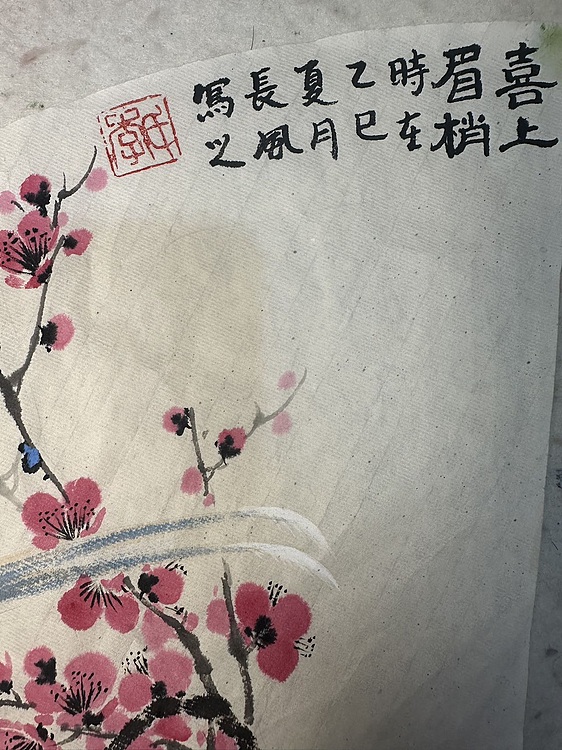 喜上
眉梢
時在
乙巳
夏月
長風
寫之